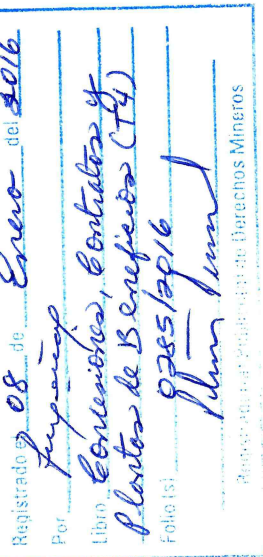 Registrado el 08 de Enero del 2016
Por
Libro Concesiones, Contratos y
Plantas de Beneficios (T4)
Folio(s) 0285/2016
de Derechos Mineros